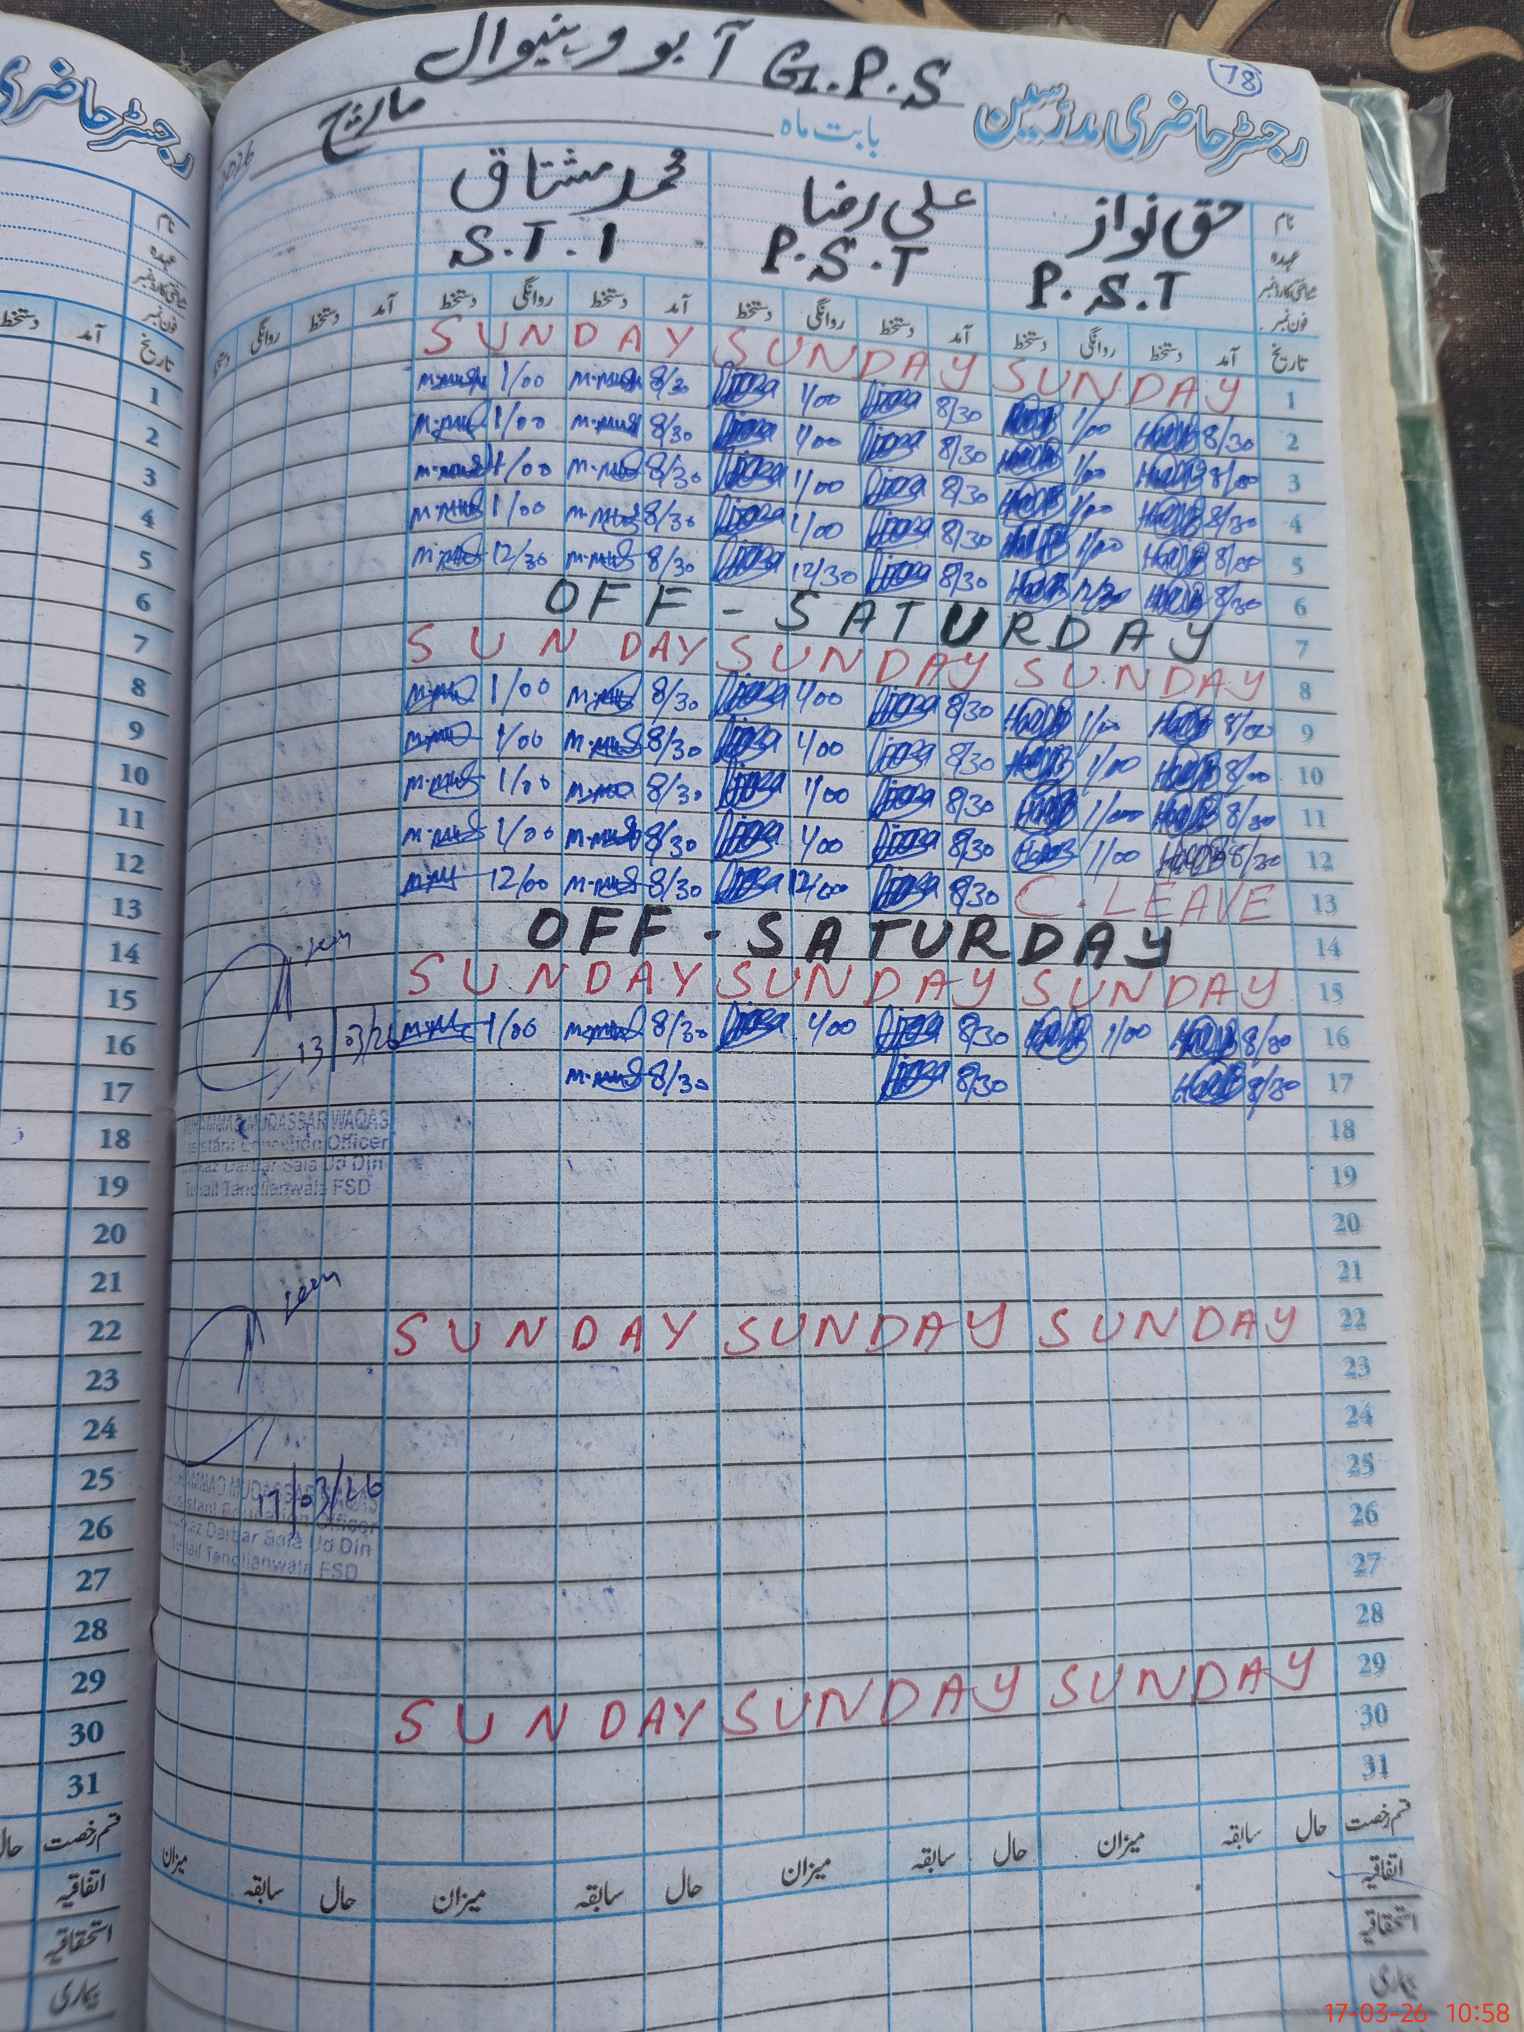 78
G.P.S آبو وینیوال
رجسٹر حاضری مدرسین
بابت ماہ مارچ 2026
نام حق نواز علی رضا محمد مشتاق
عہدہ P.S.T P.S.T S.T.I
شناختی کارڈ نمبر
فون نمبر
تاریخ آمد دستخط روانگی دستخط آمد دستخط روانگی دستخط آمد دستخط روانگی دستخط آمد دستخط روانگی دستخط
1 SUNDAY SUNDAY SUNDAY
2 8/30 1/00 8/30 1/00 8/30 1/00
3 8/00 1/00 8/30 1/00 8/30 1/00
4 8/30 1/00 8/30 1/00 8/30 1/00
5 8/00 1/00 8/30 1/00 8/30 1/00
6 8/30 12/30 8/30 12/30 8/30 12/30
7 OFF - SATURDAY
8 SUNDAY SUNDAY SUNDAY
9 8/00 1/00 8/30 1/00 8/30 1/00
10 8/00 1/00 8/30 1/00 8/30 1/00
11 8/30 1/00 8/30 1/00 8/30 1/00
12 8/30 1/00 8/30 1/00 8/30 1/00
13 C.LEAVE 8/30 12/00 8/30 12/00
14 OFF - SATURDAY
15 SUNDAY SUNDAY SUNDAY
16 8/30 1/00 8/30 1/00 8/30 1/00
17 8/30 8/30 8/30
18
19
20
21
22 SUNDAY SUNDAY SUNDAY
23
24
25
26
27
28
29 SUNDAY SUNDAY SUNDAY
30
31
قسم رخصت حال سابقہ میزان حال سابقہ میزان حال سابقہ میزان حال سابقہ میزان
اتفاقیہ
استحقاقیہ
بیماری
Seen
13/03/26
MUHAMMAD MUDASSAR WAQAS
Assistant Education Officer
Markaz Darbar Saif Ud Din
Tehsil Tandlianwala FSD
Seen
17/03/26
MUHAMMAD MUDASSAR WAQAS
Assistant Education Officer
Markaz Darbar Saif Ud Din
Tehsil Tandlianwala FSD
رجسٹر حاضری
نام
عہدہ
شناختی کارڈ نمبر
فون نمبر
تاریخ آمد دستخط
1
2
3
4
5
6
7
8
9
10
11
12
13
14
15
16
17
18
19
20
21
22
23
24
25
26
27
28
29
30
31
قسم رخصت حال
اتفاقیہ
استحقاقیہ
بیماری
17-03-26 10:58